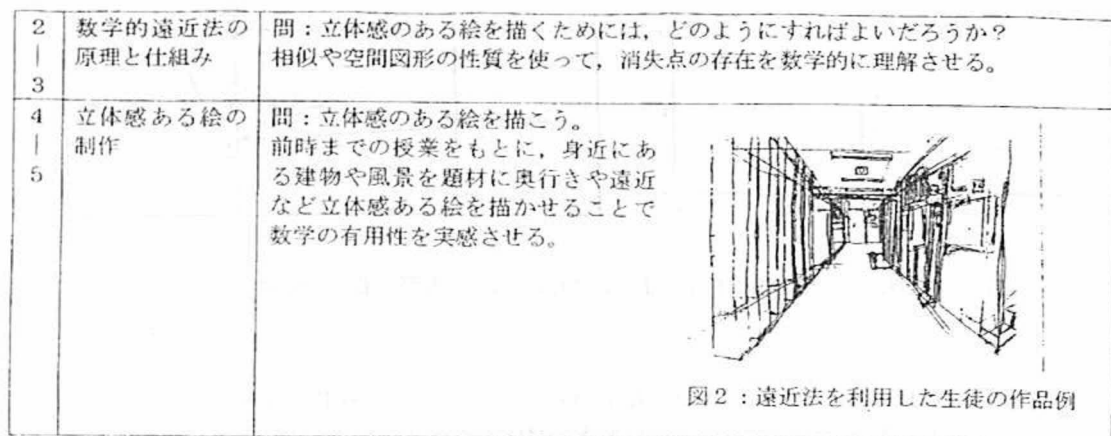 2
|
3
数学的遠近法の
原理と仕組み
問：立体感のある絵を描くためには，どのようにすればよいだろうか？
相似や空間図形の性質を使って，消失点の存在を数学的に理解させる。
4
|
5
立体感ある絵の
制作
問：立体感のある絵を描こう。
前時までの授業をもとに，身近にあ
る建物や風景を題材に奥行きや遠近
など立体感ある絵を描かせることで
数学の有用性を実感させる。
図2：遠近法を利用した生徒の作品例